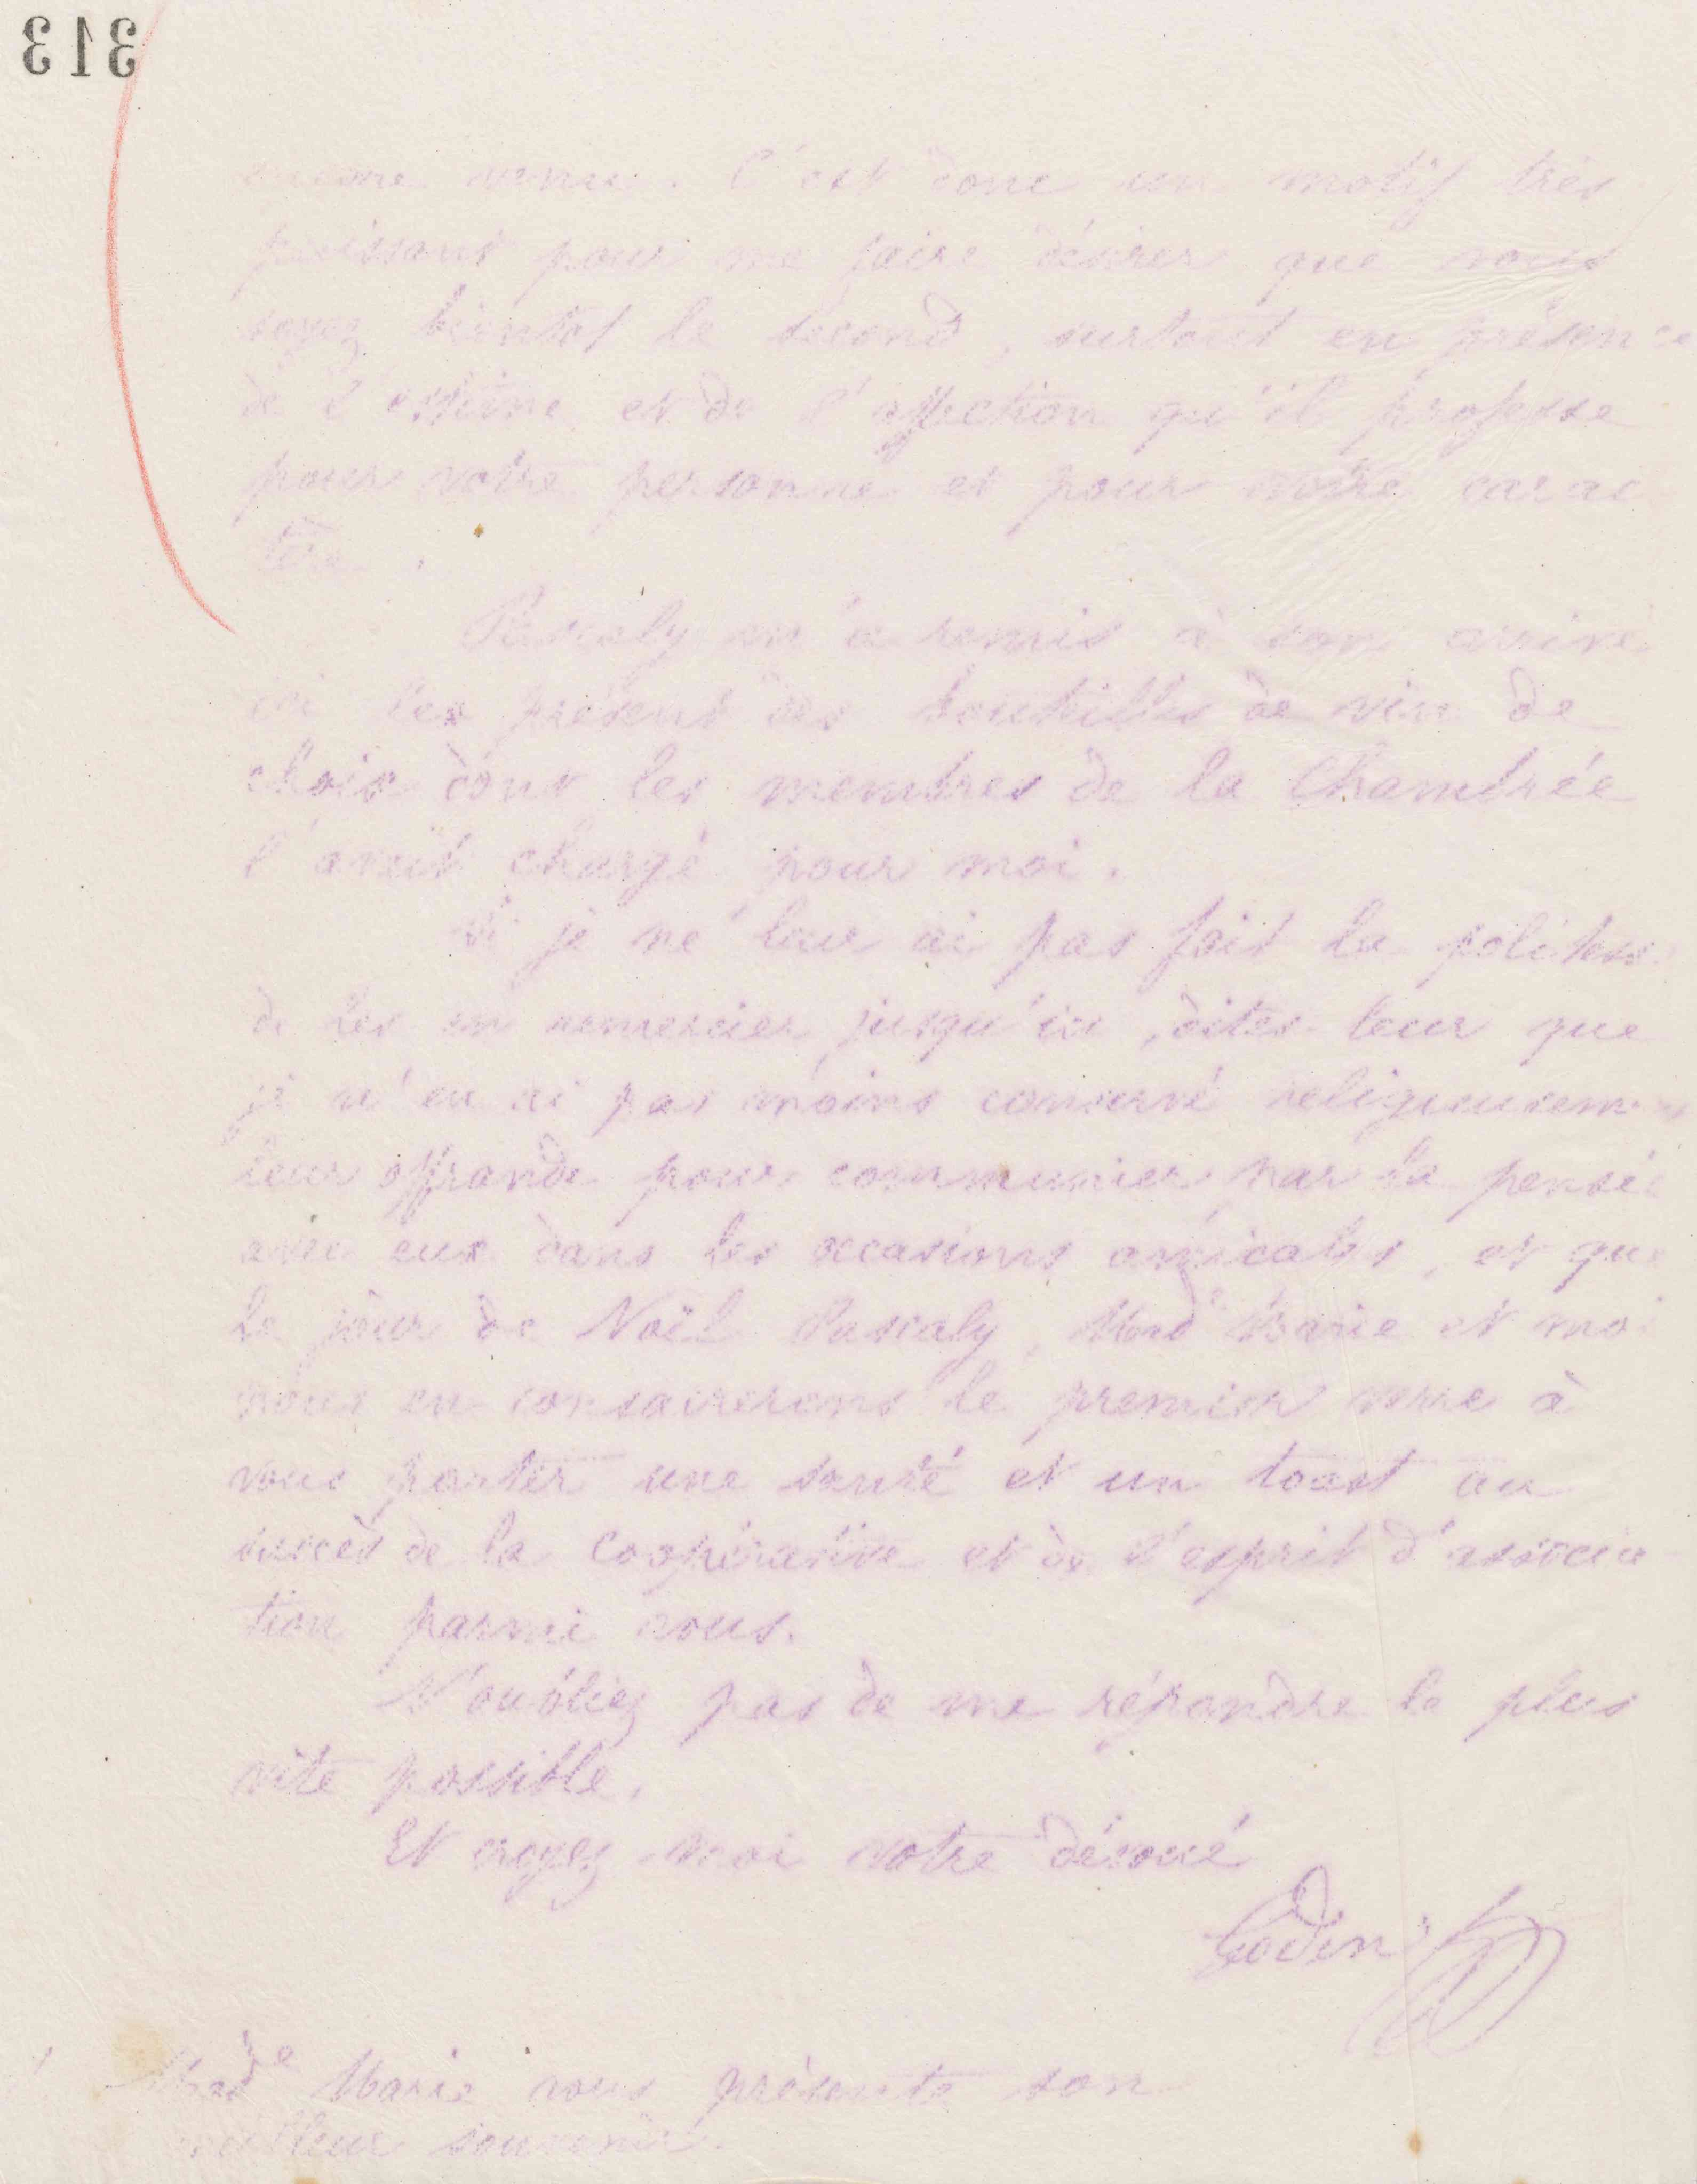 313
encore venu. C'est donc un motif très
puissant pour me faire désirer que vous
soyez bientôt le second, surtout en présence
de l'estime et de l'affection qu'il professe
pour votre personne et pour votre carac
tère.
Pascaly m'a remis à son arrivé
ici les présent des bouteilles de vin de
choix dont les membres de la Chambrée
l'avait chargé pour moi.
Si je ne leur ai pas fait la politess
de les en remercier jusqu'ici, dites leur que
je n'en ai pas moins conservé religieusem
leur offrande pour communier par la pensée
avec eux dans les occasions amicales, et que
le jour de Noël Pascaly, Made Marie et moi
nous en consacrerons le premier verre à
vous porter une santé et un toast au
succès de la Coopérative et de l'esprit d'associa
tion parmi vous.
N'oubliez pas de me répondre le plus
vite possible.
Et croyez moi votre dévoué
Godin
Made Marie vous présente son
meilleur souvenir.